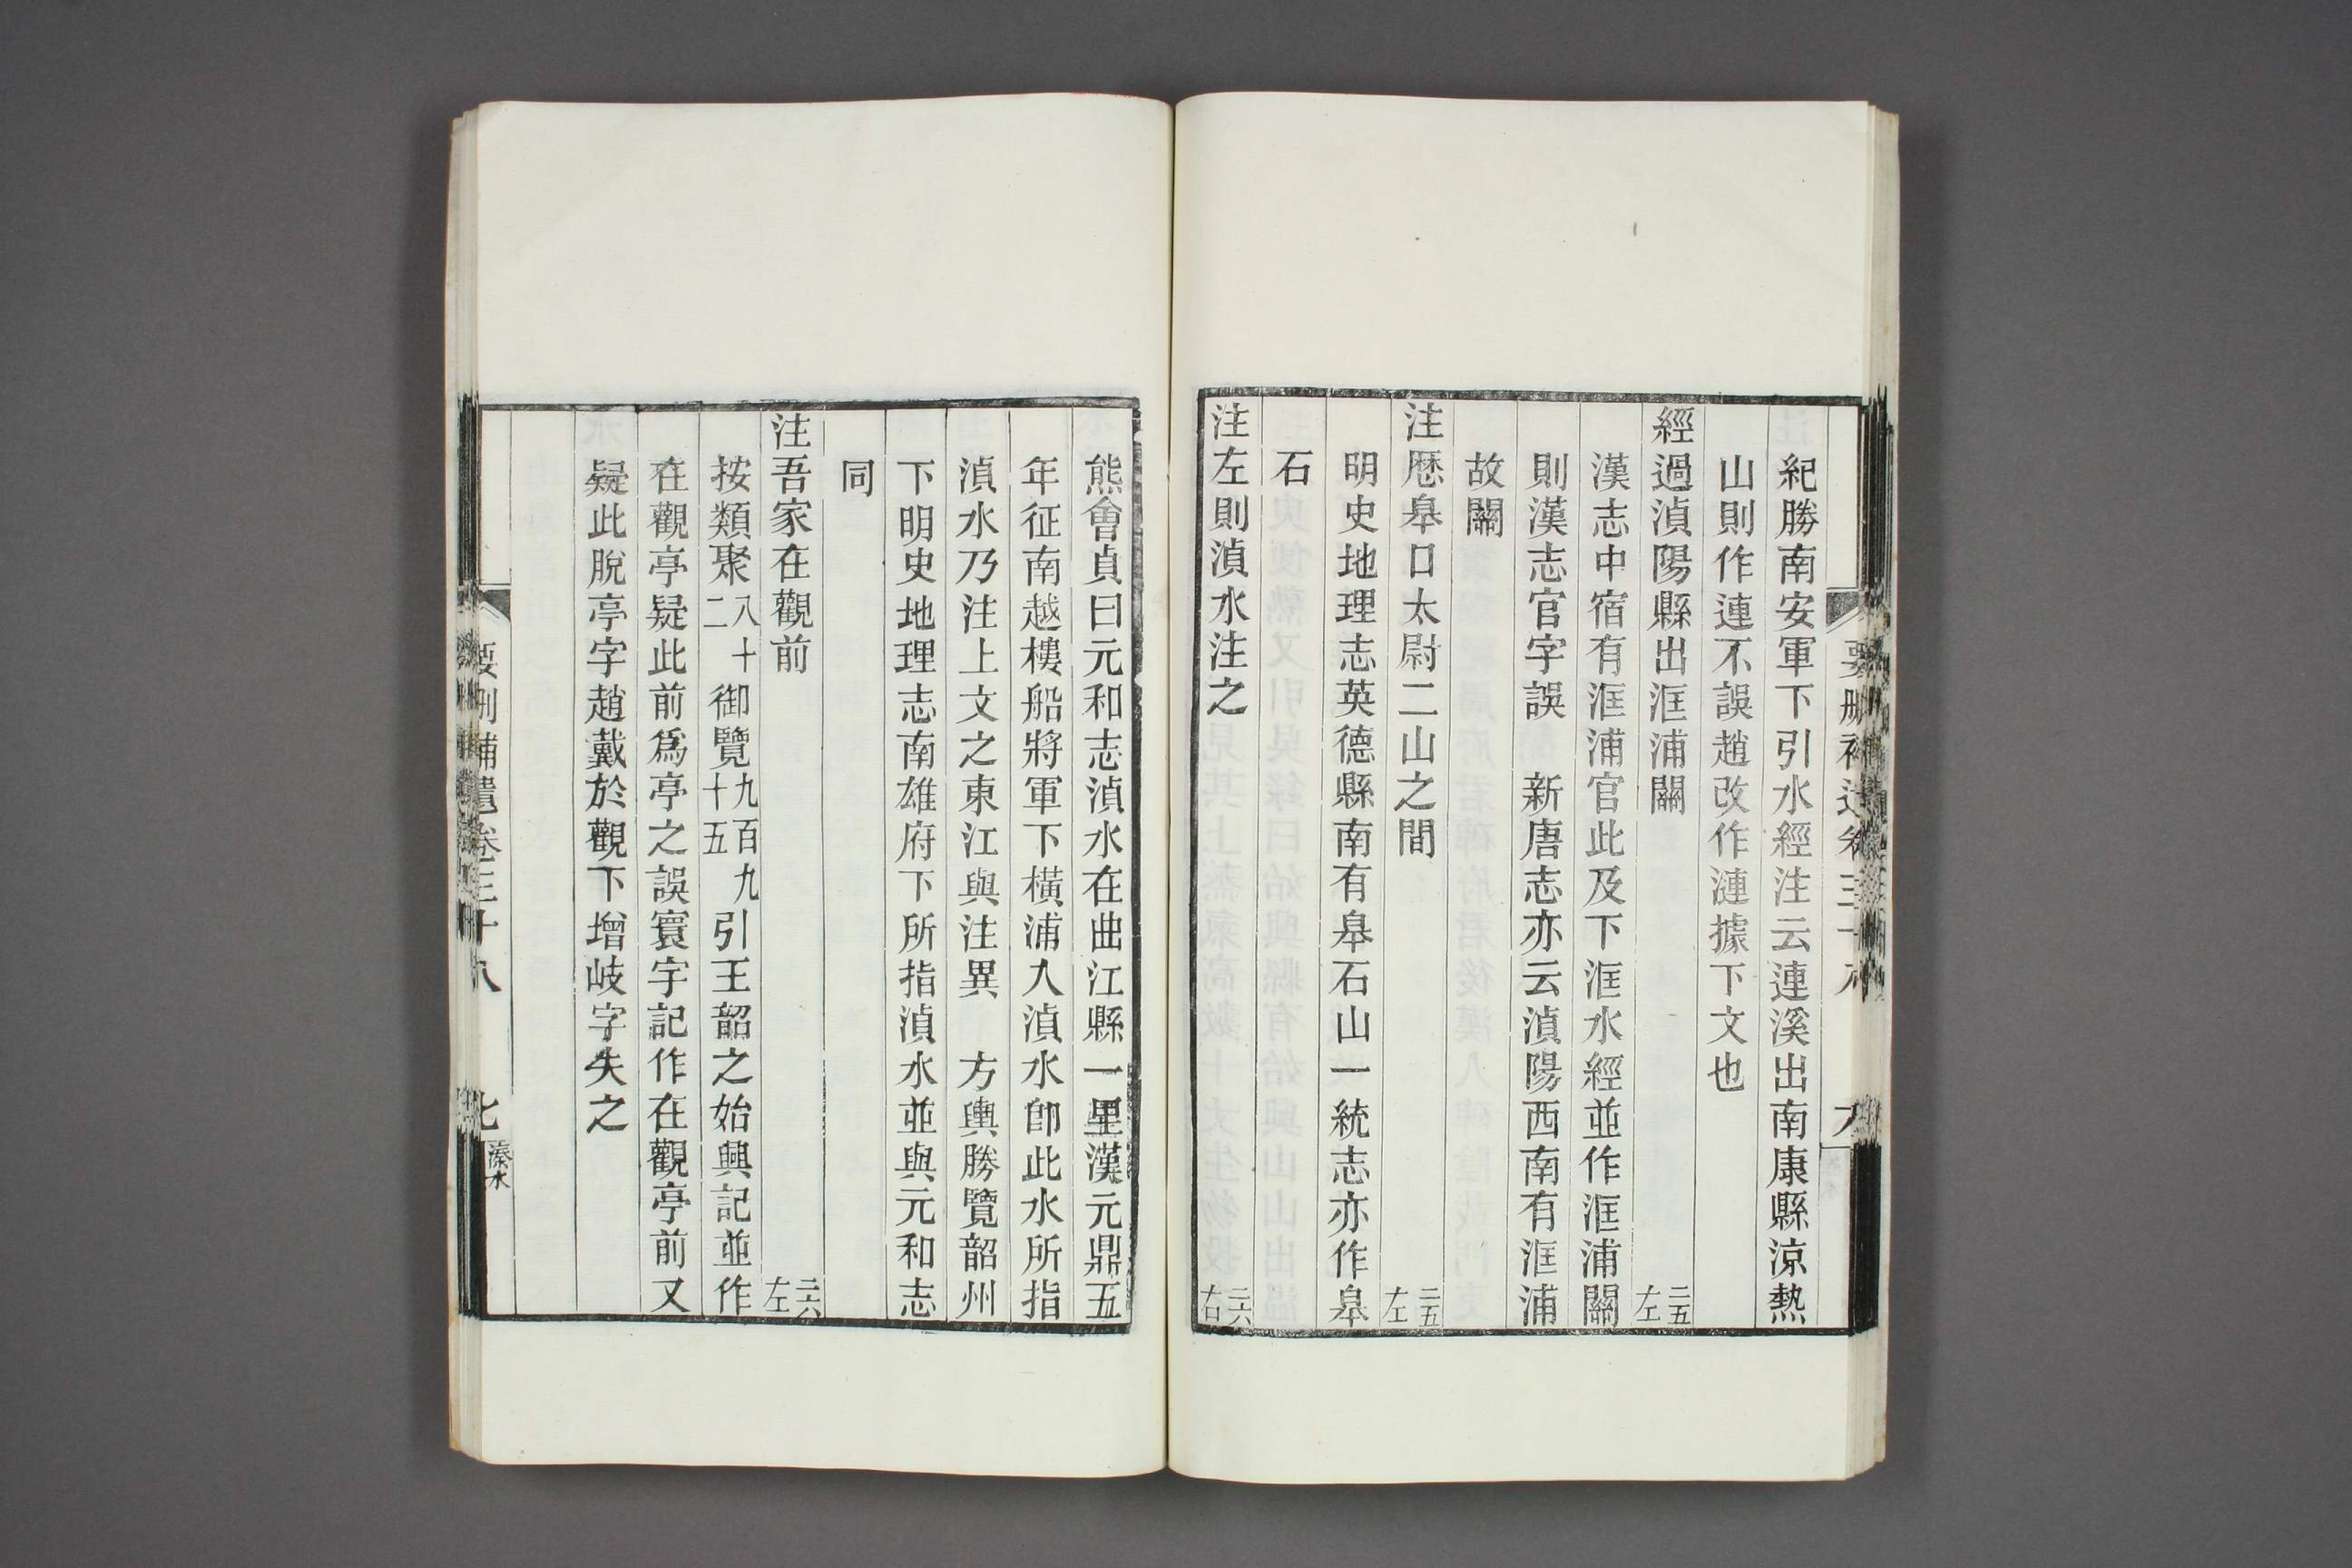 紀勝南安軍下引水經注云連溪出南康縣涼熱
山則作連不誤趙改作漣據下文也
經過湞陽縣出洭浦關 二五左
漢志中宿有洭浦官此及下洭水經並作洭浦關
則漢志官字誤 新唐志亦云湞陽西南有洭浦
故關
注歷皋口太尉二山之間 二五左
明史地理志英德縣南有皋石山一統志亦作皋
石
注左則湞水注之 二六右
熊會貞曰元和志湞水在曲江縣一里漢元鼎五
年征南越樓船將軍下橫浦入湞水卽此水所指
湞水乃注上文之東江與注異 方輿勝覽韶州
下明史地理志南雄府下所指湞水並與元和志
同
注吾家在觀前 二六左
按類聚八十二御覽九百九十五引王韶之始興記並作
在觀亭疑此前爲亭之誤寰宇記作在觀亭前又
疑此脫亭字趙戴於觀下增岐字失之
要刪補遺卷三十八
溱水